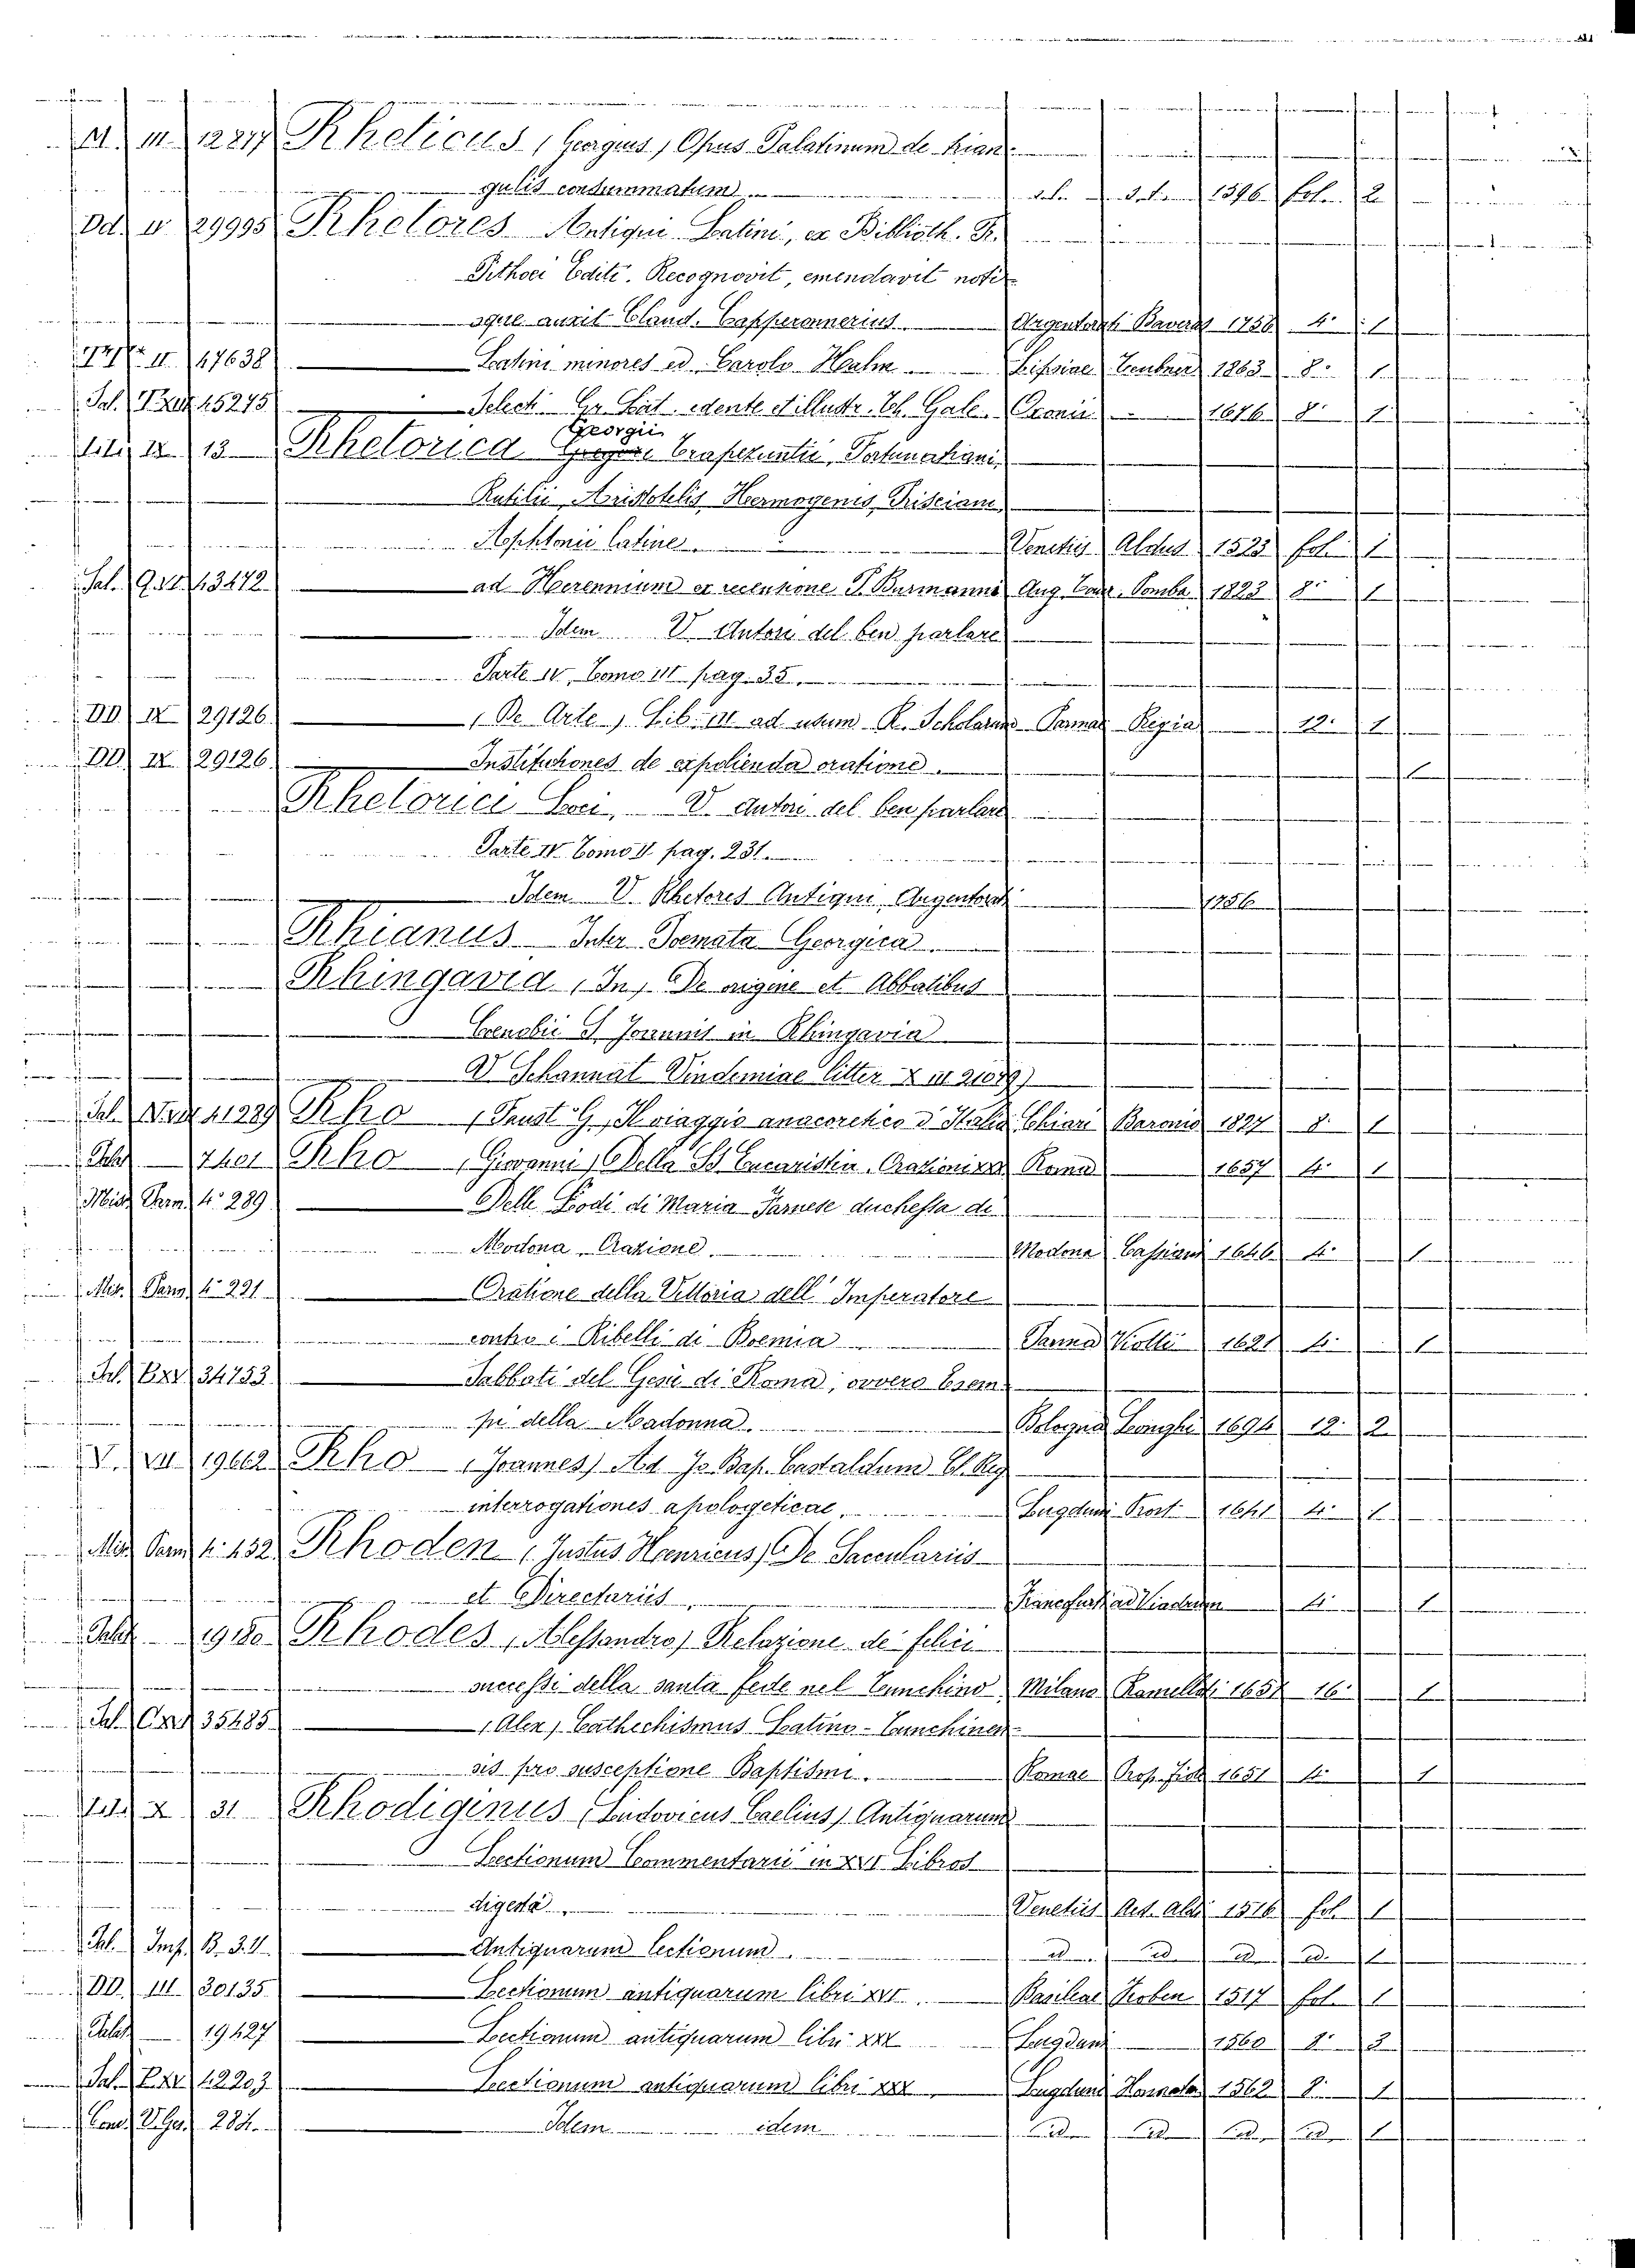 M. III. 12217 Rheticus (Georgius) Opus Palatinum de trian
gulis consummatum s. l. s. t. 1596 fol. 2
Dd. V 29995 Rhetores Antiqui Latini, ex Biblioth. F.
Pithoei Editi. Recognovit, emendavit noti
sque auxit Claud. Capperonnerius Argentorati Bavera 1756 4° 1
II 47638 Latini minores ed. Carolo Halm Lipsiae Teubner 1863 8° 1
Sal. 45275 Select. Gr. Lat. edente et illustr. Th. Gale. Oxonii 1676 8° 1
13 Rhetorica Georgii Trapezuntii, Fortunatiani,
Rutilii, Aristotelis, Hermogenis, Prisciani,
Aphtonii Latine Venetiis Aldus 1523 fol. 1
Sal. 43472 ad Herennium ex recensione P. Burmanni Aug. Taur. Pomba 1823 8° 1
Idem V. Autori del ben parlare
Parte IV, Tomo III pag. 35.
DD. IX 29126 (De Arte) Lib. III ad usum R. Scholarum Parmae Regia 12° 1
DD. IX 29126 Institutiones de expolienda oratione. 1
Rhetorici Loci, V. Autori del ben parlare
Parte IV Tomo V pag. 231.
Idem V. Rhetores Antiqui, Argentorati 1756
Rhianus Inter Poemata Georgica.
Rhingavia (In) De origine et Abbatibus
Coenobii S. Joannis in Rhingavia
V. Schannat Vindemiae Litter. X III 21079)
Sal. 41289 Rho (Faust. G.) Il viaggio anacoretico d'Italia Chiari Baronio 1827 8° 1
Palat 7401 Rho (Giovanni) Della SS. Eucaristia. Orazioni Roma 1657 4° 1
Misc. Parm. 4° 289 Delle Lodi di Maria Farnese duchessa di
Modona, Orazione. Modona Cassiani 1646 4° 1
Mis. Parm. 4° 221 Oratione della Vittoria dell' Imperatore
contro i Ribelli di Boemia Parma Viotti 1621 4° 1
Sal. 34753 Sabbati del Gesù di Roma; ovvero Esem
pi della Madonna. Bologna Longhi 1694 12° 2
V. VII 19662 Rho (Joannes) Ad Jo. Bap. Castaldum Cl. Reg
interrogationes apologeticae. Lugduni Prost 1641 4° 1
Mis. Parm. 4° 132 Rhoden (Justus Henricus) De Saccularis
et Directariis. Francofurti ad Viadrum 4° 1
Palat 19180 Rhodes (Alessandro) Relazione de' felici
successi della santa fede nel Tunchino Milano Ramellati 1651 16° 1
Sal. 35485 (Alex) Cathechismus Latino-Tunchinen
sis pro susceptione Baptismi. Romae Prop. Fid. 1651 4° 1
X 31 Rhodiginus (Ludovicus Caelius) Antiquarum
Lectionum Commentarii in XVI Libros
digesta Venetiis Aed. Aldi 1516 fol. 1
Pal. Imp. B. 34 Antiquarum lectionum id id id id 1
DD. III 30135 Lectionum antiquarum libri XVI. Basileae Froben 1517 fol. 1
Palat 19427 Lectionum antiquarum libri XXX Lugduni 1560 8° 3
Sal. 42203 Lectionum antiquarum libri XXX Lugduni 1562 8° 1
284 Idem idem id id id id 1